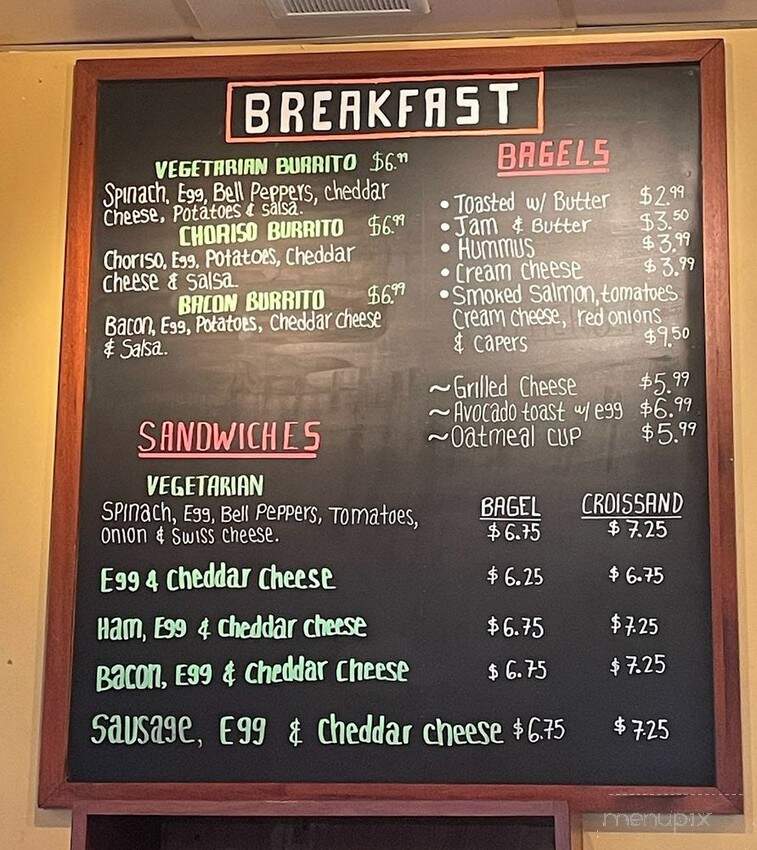 BREAKFAST
VEGETARIAN BURRITO $6.99
Spinach, Egg, Bell Peppers, cheddar
Cheese, Potatoes & salsa.
CHORISO BURRITO $6.99
Choriso, Egg, Potatoes, Cheddar
Cheese & Salsa
BACON BURRITO $6.99
Bacon, Egg, Potatoes, Cheddar cheese
& Salsa.
BAGELS
• Toasted w/ Butter $2.99
• Jam & Butter $3.50
• Hummus $3.99
• Cream cheese $3.99
• Smoked Salmon, tomatoes
Cream cheese, red onions
& capers $9.50
~Grilled Cheese $5.99
~Avocado toast w/ egg $6.99
~Oatmeal cup $5.99
SANDWICHES
BAGEL CROISSAND
VEGETARIAN
Spinach, Egg, Bell Peppers, Tomatoes,
Onion & Swiss cheese. $6.75 $7.25
Egg & Cheddar Cheese $6.25 $6.75
Ham, Egg & cheddar cheese $6.75 $7.25
Bacon, Egg & Cheddar Cheese $6.75 $7.25
Sausage, Egg & Cheddar cheese $6.75 $7.25
menupix